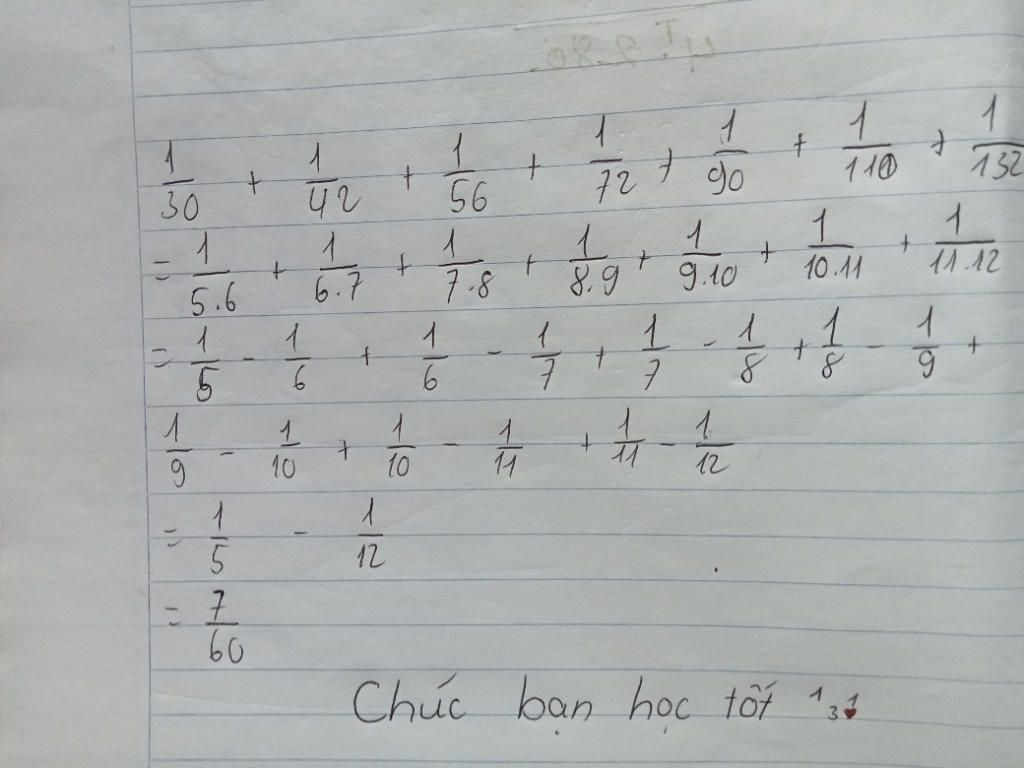 1/30 + 1/42 + 1/56 + 1/72 + 1/90 + 1/110 + 1/132
= 1/5.6 + 1/6.7 + 1/7.8 + 1/8.9 + 1/9.10 + 1/10.11 + 1/11.12
= 1/5 - 1/6 + 1/6 - 1/7 + 1/7 - 1/8 + 1/8 - 1/9 +
1/9 - 1/10 + 1/10 - 1/11 + 1/11 - 1/12
= 1/5 - 1/12
= 7/60
Chúc bạn học tốt